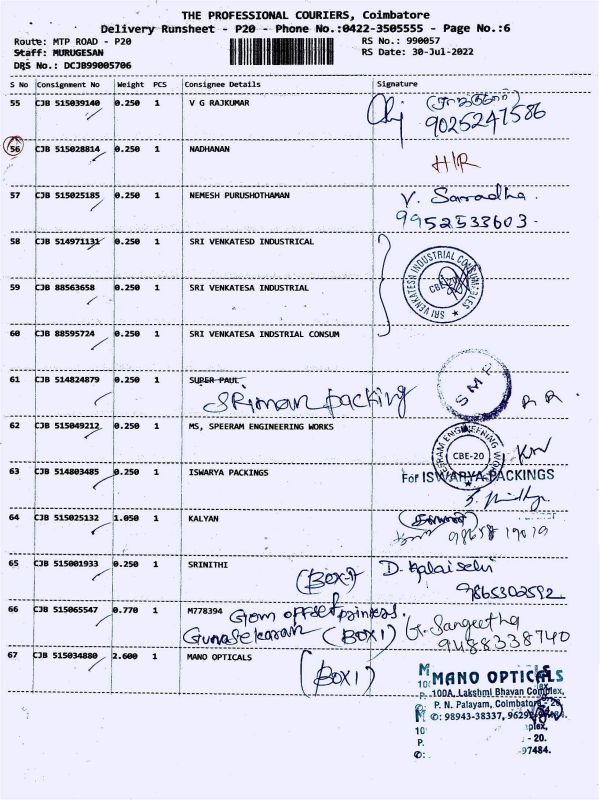 THE PROFESSIONAL COURIERS, Coimbatore
Delivery Runsheet - P20 - Phone No.:0422-3505555 - Page No.:6
Route: MTP ROAD - P20 RS No.: 990057
Staff: MURUGESAN RS Date: 30-Jul-2022
DRS No.: DCJB99005706
S No Consignment No Weight PCS Consignee Details Signature
55 CJB 515039140 0.250 1 V G RAJKUMAR
9025247586
56 CJB 515028814 0.250 1 NADHANAN H/R
57 CJB 515025185 0.250 1 NEMESH PURUSHOTHAMAN V. Saradha.
9952533603.
58 CJB 514971131 0.250 1 SRI VENKATESD INDUSTRICAL
SRI VENKATESA INDUSTRIAL CONSUMABLES
59 CJB 88563658 0.250 1 SRI VENKATESA INDUSTRIAL
60 CJB 88595724 0.250 1 SRI VENKATESA INDSTRIAL CONSUM
61 CJB 514824879 0.250 1 SUPER PAUL SMP
SRiman packing
62 CJB 515049212 0.250 1 MS, SPEERAM ENGINEERING WORKS
CBE-20
63 CJB 514803485 0.250 1 ISWARYA PACKINGS For ISWARYA PACKINGS
64 CJB 515025132 1.050 1 KALYAN
65 CJB 515001933 0.250 1 SRINITHI (BOX-1) D. Kalaiselvi
9865302592
66 CJB 515065547 0.770 1 M778394 Gem offset printers.
Gunasekaran (BOX1) G. Sangeetha
9488338740
67 CJB 515034880 2.600 1 MANO OPTICALS (BOX1)
MANO OPTICALS
100A, Lakshmi Bhavan Complex,
P. N. Palayam, Coimbatore - 20.
✆: 98943-38337,
plex,
- 20.
-97484.